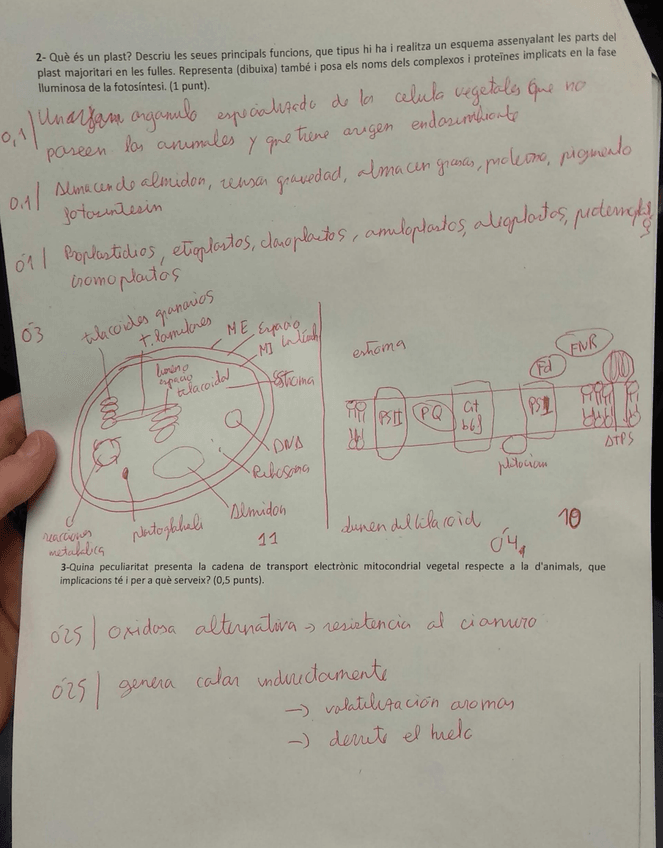 2- Què és un plast? Descriu les seues principals funcions, que tipus hi ha i realitza un esquema assenyalant les parts del
plast majoritari en les fulles. Representa (dibuixa) també i posa els noms dels complexos i proteïnes implicats en la fase
lluminosa de la fotosíntesi. (1 punt).
0,1| Un organulo especializado de la celula vegetales que no
poseen los animales y que tiene origen endosimbionte
0.1| Almacen de almidon, sensar gravedad, almacen grasas, proteina, pigmento
fotosintesin
0'1| Proplastidios, etioplastos, cloroplastos, amiloplastos,
cromoplastos
0'3
tilacoides granarios
T. lamelares
ME
Espacio
MI
lumeno
espacio
tilacoidal
Estroma
DNA
Ribosoma
Almidon
reacciones
metabolica
11
estroma
PSII
PQ
Cit
b6f
PSI
Fd
FNR
ATPS
lumen del tilacoid
10
0'4
3-Quina peculiaritat presenta la cadena de transport electrònic mitocondrial vegetal respecte a la d'animals, que
implicacions té i per a què serveix? (0,5 punts).
0'25| oxidasa alternativa → resistencia al cianuro
0'25| genera calor indirectamente
→ volatilización aromas
→ derrite el hielo